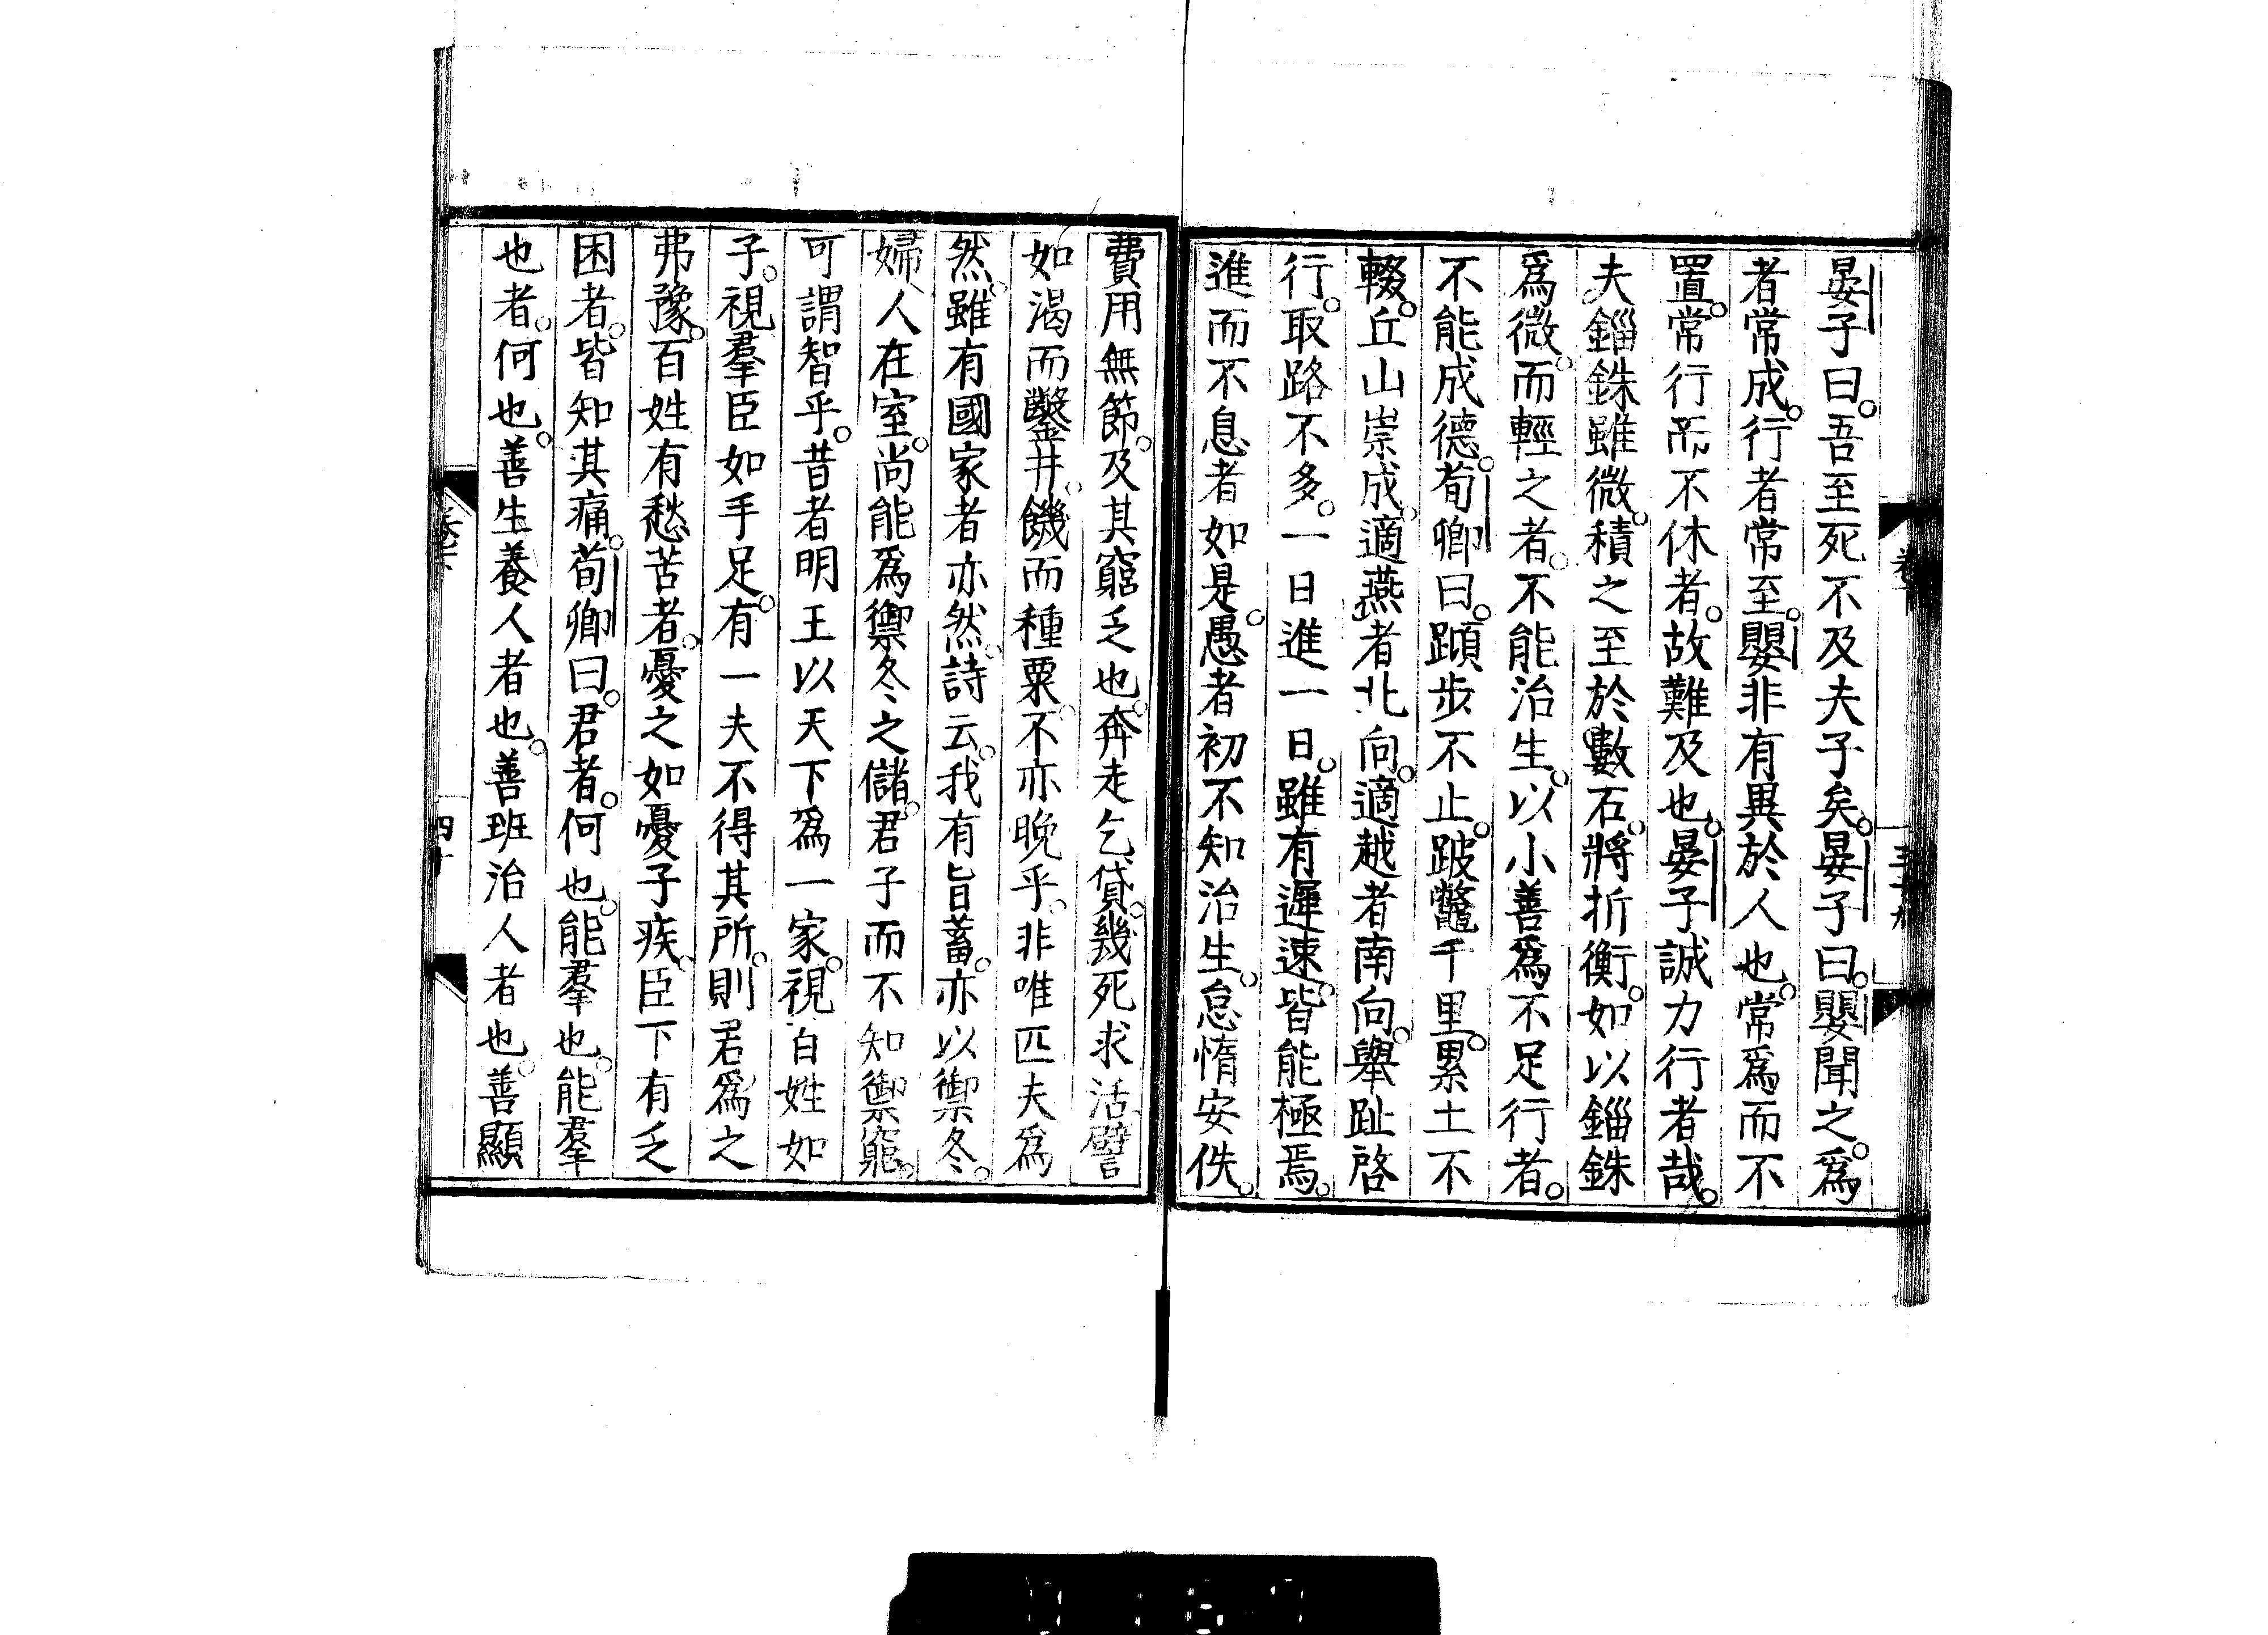 晏子曰。吾至死不及夫子矣。晏子曰。嬰聞之。爲
者常成。行者常至。嬰非有異於人也。常爲而不
置。常行而不休者。故難及也。晏子誠力行者哉。
夫錙銖雖微。積之至於數石。將折衡。如以錙銖
爲微。而輕之者。不能治生。以小善爲不足行者。
不能成德。荀卿曰。蹞步不止。跛鼈千里。累土不
輟。丘山崇成。適燕者北向。適越者南向。舉趾啓
行。取路不多。一日進一日。雖有遲速。皆能極焉。
進而不息者如是。愚者初不知治生。怠惰安佚。
費用無節。及其窮乏也。奔走乞貸。幾死求活。譬
如渴而鑿井。饑而種粟。不亦晚乎。非唯匹夫爲
然。雖有國家者亦然。詩云。我有旨蓄。亦以禦冬。
婦人在室。尚能爲禦冬之儲。君子而不知禦窮。
可謂智乎。昔者明王以天下爲一家。視百姓如
子。視羣臣如手足。有一夫不得其所。則君爲之
弗豫。百姓有愁苦者。憂之如憂子疾。臣下有乏
困者。皆知其痛。荀卿曰。君者。何也。能羣也。能羣
也者。何也。善生養人者也。善班治人者也。善顯